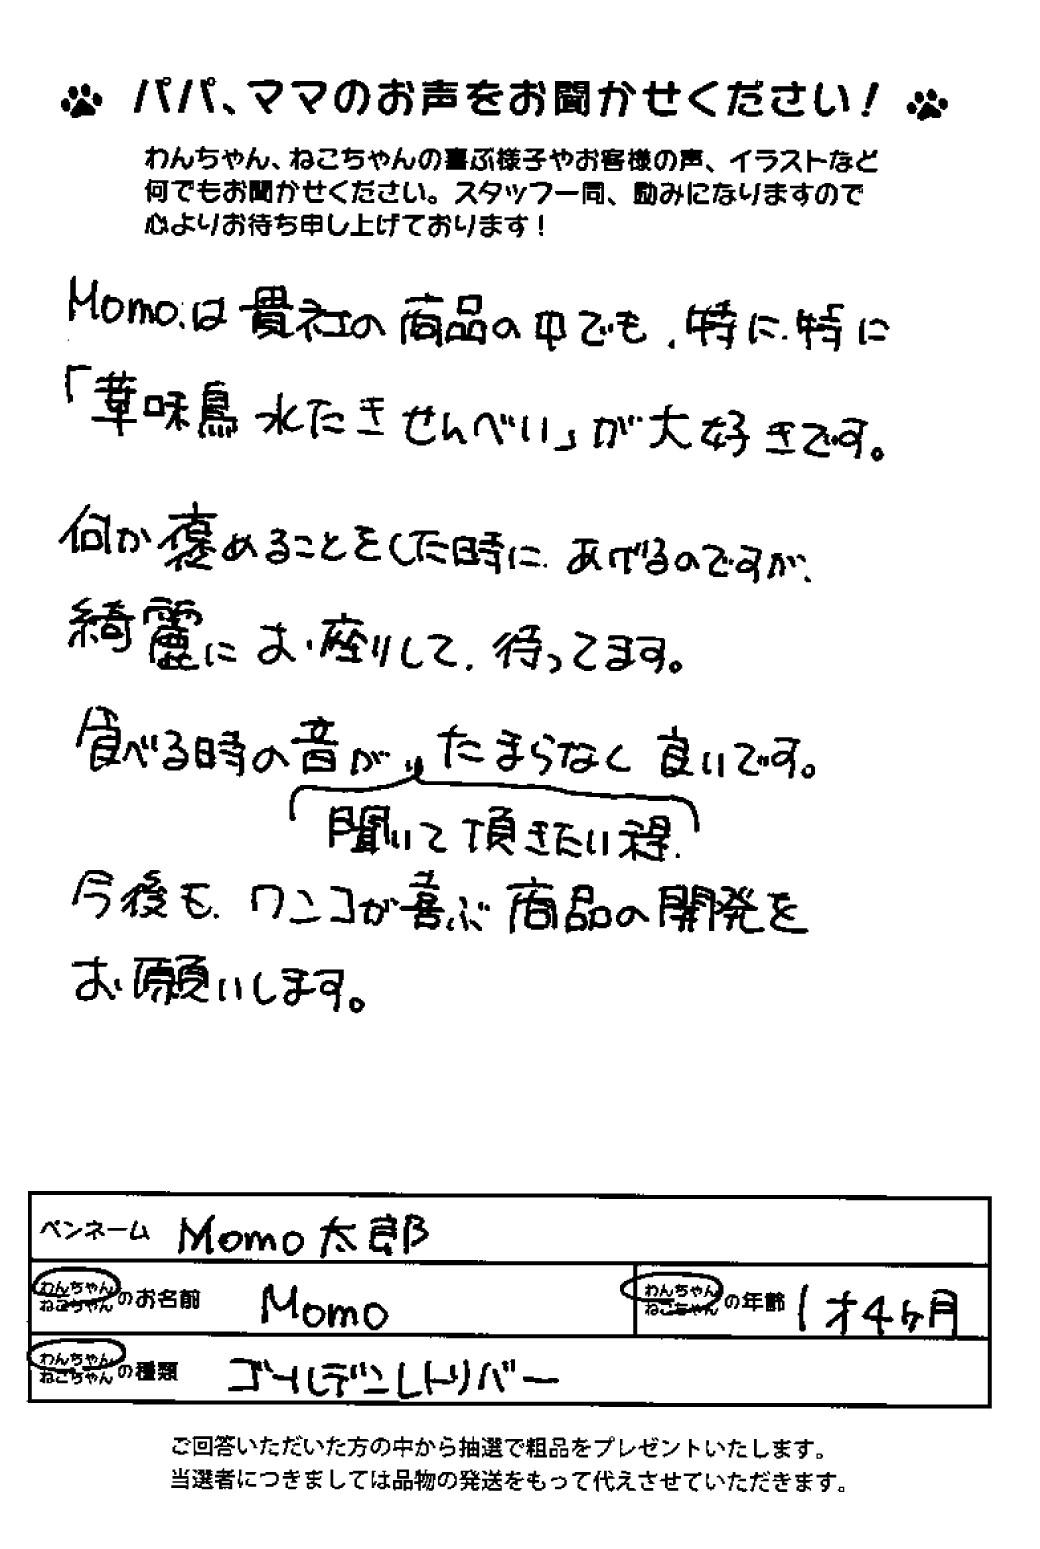 パパ、ママのお声をお聞かせください！
わんちゃん、ねこちゃんの喜ぶ様子やお客様の声、イラストなど
何でもお聞かせください。スタッフ一同、励みになりますので
心よりお待ち申し上げております！
Momo.は貴社の商品の中でも、特に、特に
「草味鳥 水たきせんべい」が大好きです。
何か褒めることをした時に、あげるのですが、
綺麗にお座りして、待ってます。
食べる時の音が、たまらなく良いです。
聞いて頂きたい程、
今後も、ワンコが喜ぶ商品の開発を
お願いします。
ペンネーム Momo太郎
わんちゃん
ねこちゃん のお名前 Momo
わんちゃん
ねこちゃん の年齢 1才4ヶ月
わんちゃん
ねこちゃん の種類 ゴールデンレトリバー
ご回答いただいた方の中から抽選で粗品をプレゼントいたします。
当選者につきましては品物の発送をもって代えさせていただきます。